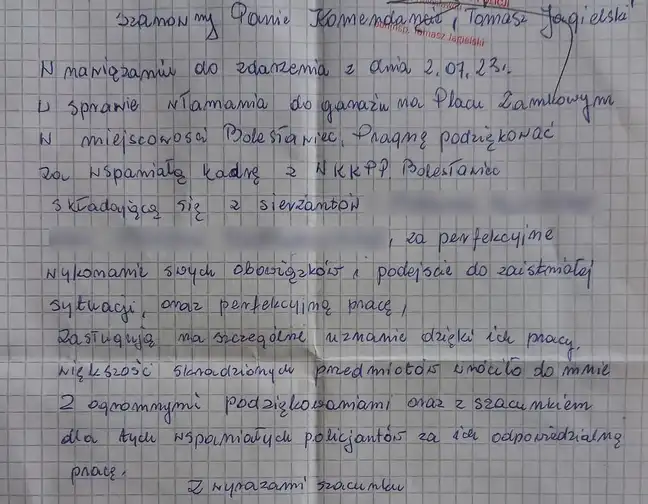 Szanowny Panie Komendancie, Tomasz Jagielski
Tomasz Jagielski
W nawiązaniu do zdarzenia z dnia 2.07.23r.
w sprawie włamania do garażu na Placu Zamkowym
w miejscowości Bolesławiec, Pragnę podziękować
za wspaniałą kadrę z WKKPP Bolesławiec
składającą się z sierżantów
, za perfekcyjne
wykonanie swych obowiązków i podejście do zaistniałej
sytuacji, oraz perfekcyjną pracę,
Zasługują na szczególne uznanie dzięki ich pracy,
większość skradzionych przedmiotów wróciło do mnie
Z ogromnymi podziękowaniami oraz z szacunkiem
dla tych wspaniałych policjantów za ich odpowiedzialną
pracę.
Z wyrazami szacunku